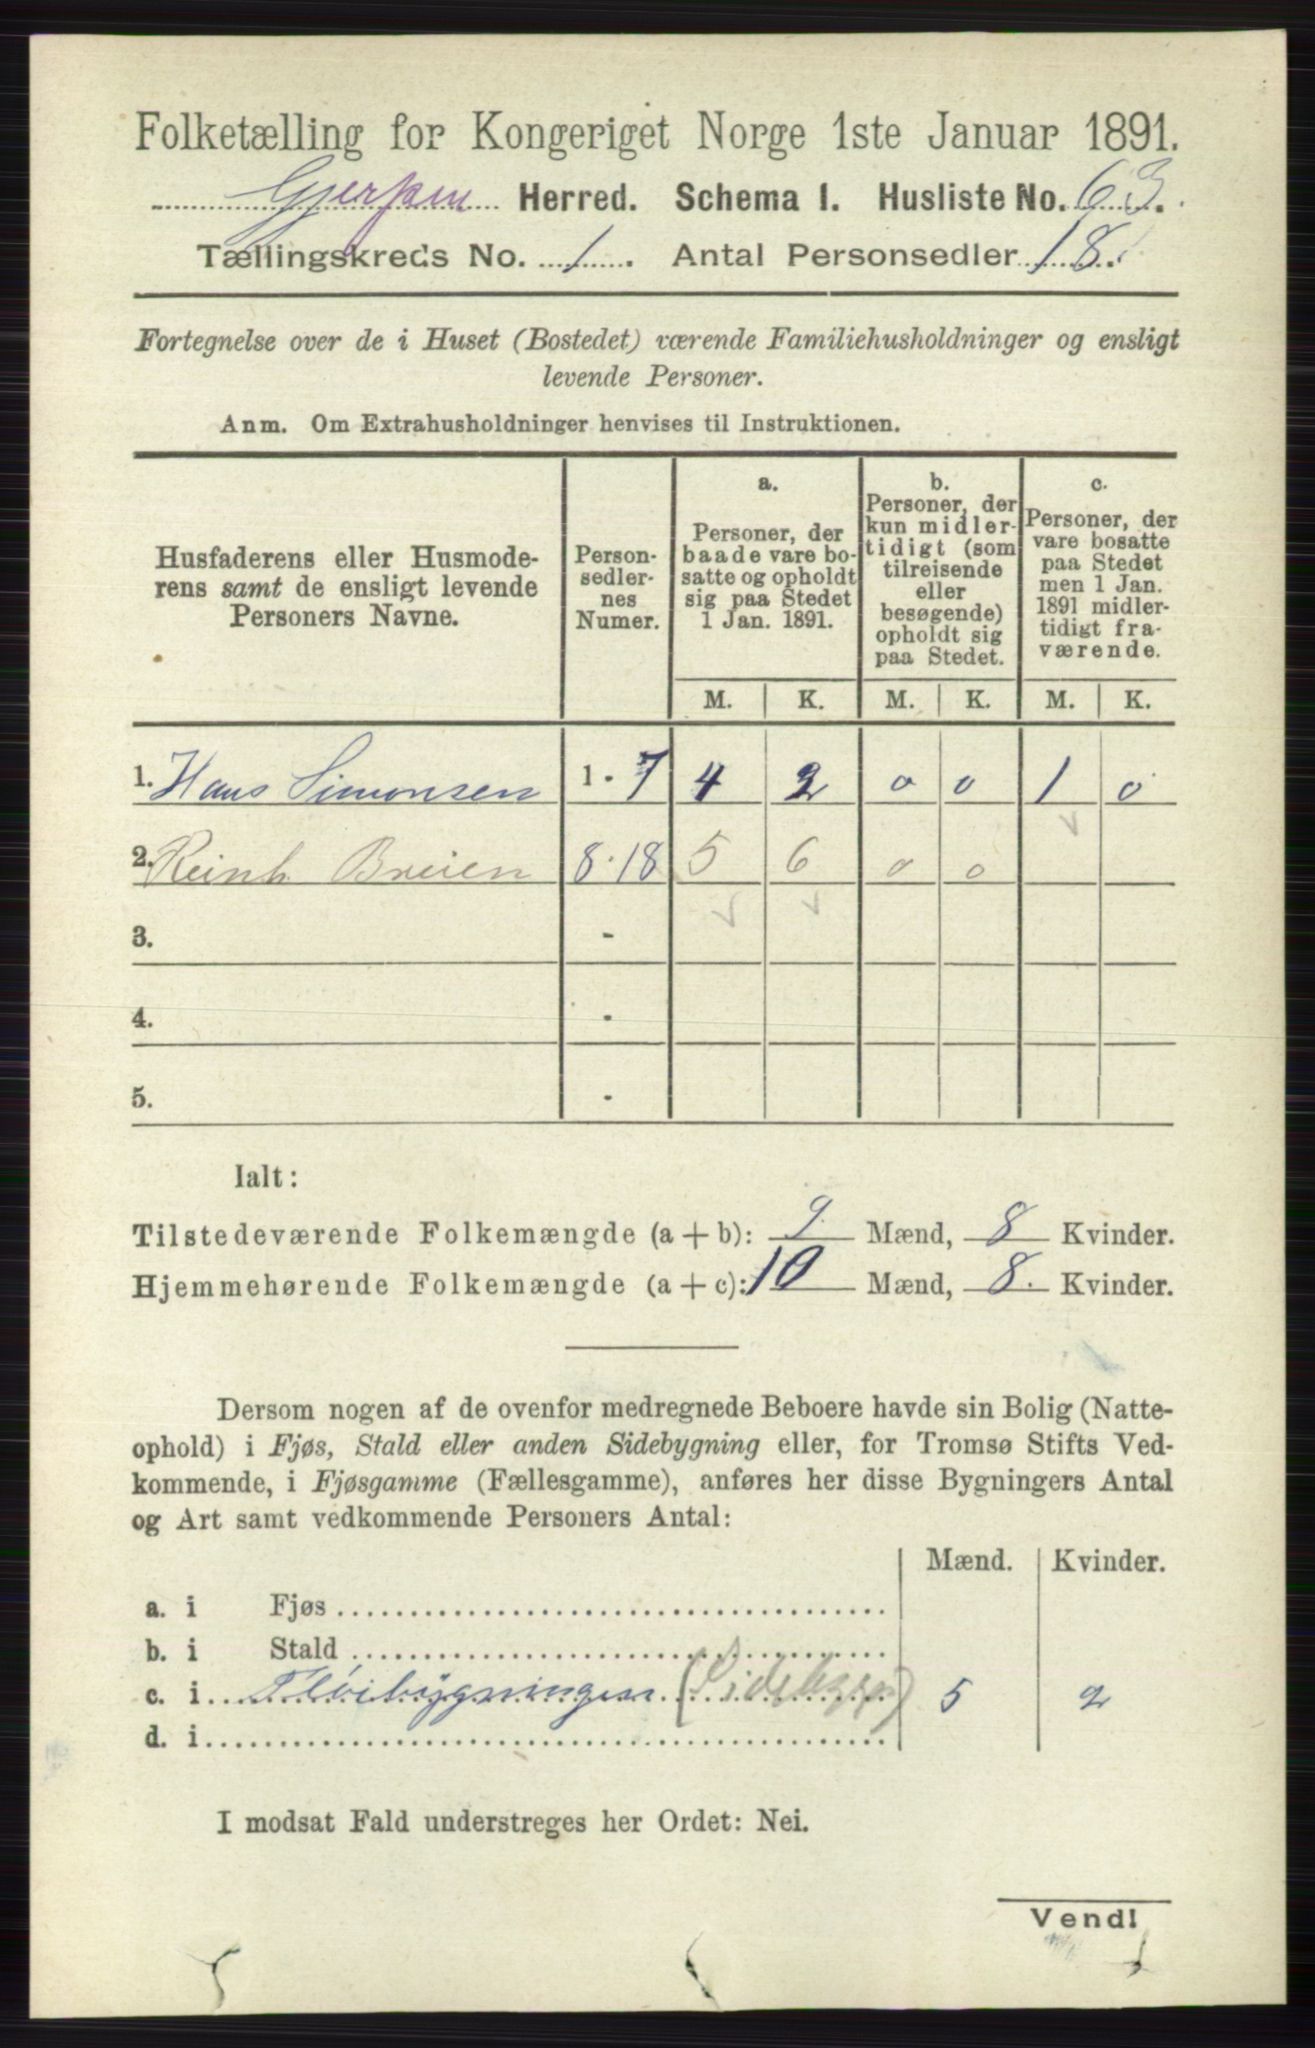 Folketælling for Kongeriget Norge 1ste Januar 1891.
Gjerpen Herred. Schema 1. Husliste No. 63.
Tællingskreds No. 1. Antal Personsedler 18.
Fortegnelse over de i Huset (Bostedet) værende Familiehusholdninger og ensligt
levende Personer.
Anm. Om Extrahusholdninger henvises til Instruktionen.
Husfaderens eller Husmode-
rens samt de ensligt levende
Personers Navne.
Person-
sedler-
nes
Numer.
a.
Personer, der
baade vare bo-
satte og opholdt
sig paa Stedet
1 Jan. 1891.
b.
Personer, der
kun midler-
tidigt (som
tilreisende
eller
besøgende)
opholdt sig
paa Stedet.
c.
Personer, der
vare bosatte
paa Stedet
men 1 Jan.
1891 midler-
tidigt fra-
værende.
M. K. M. K. M. K.
1. Hans Simonsen 1 - 7 4 2 0 0 1 0
2. Reinh Breien 8 - 18 5 6 0 0
3. -
4. -
5. -
Ialt:
Tilstedeværende Folkemængde (a + b): 9 Mænd, 8 Kvinder.
Hjemmehørende Folkemængde (a + c): 10 Mænd, 8. Kvinder.
Dersom nogen af de ovenfor medregnede Beboere havde sin Bolig (Natte-
ophold) i Fjøs, Stald eller anden Sidebygning eller, for Tromsø Stifts Ved-
kommende, i Fjøsgamme (Fællesgamme), anføres her disse Bygningers Antal
og Art samt vedkommende Personers Antal:
Mænd. Kvinder.
a. i Fjøs
b. i Stald
c. i Fløibygningen (Sidebygn) 5 2
d. i
I modsat Fald understreges her Ordet: Nei.
Vend!